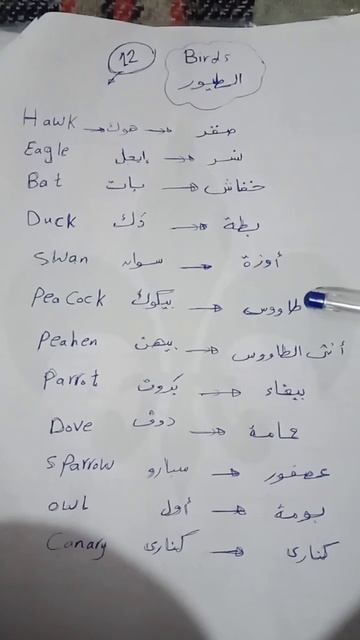 12
Birds
الطيور
Hawk هوك صقر
Eagle إيعل نسر
Bat بات خفاش
Duck دَك بطة
Swan سوان أوزة
Peacock بيكوك طاووس
Peahen بيهن أنثى الطاووس
Parrot بَروت ببغاء
Dove دوف حمامة
Sparrow سبارو عصفور
owl أول بومة
Canary كنارى كنارى